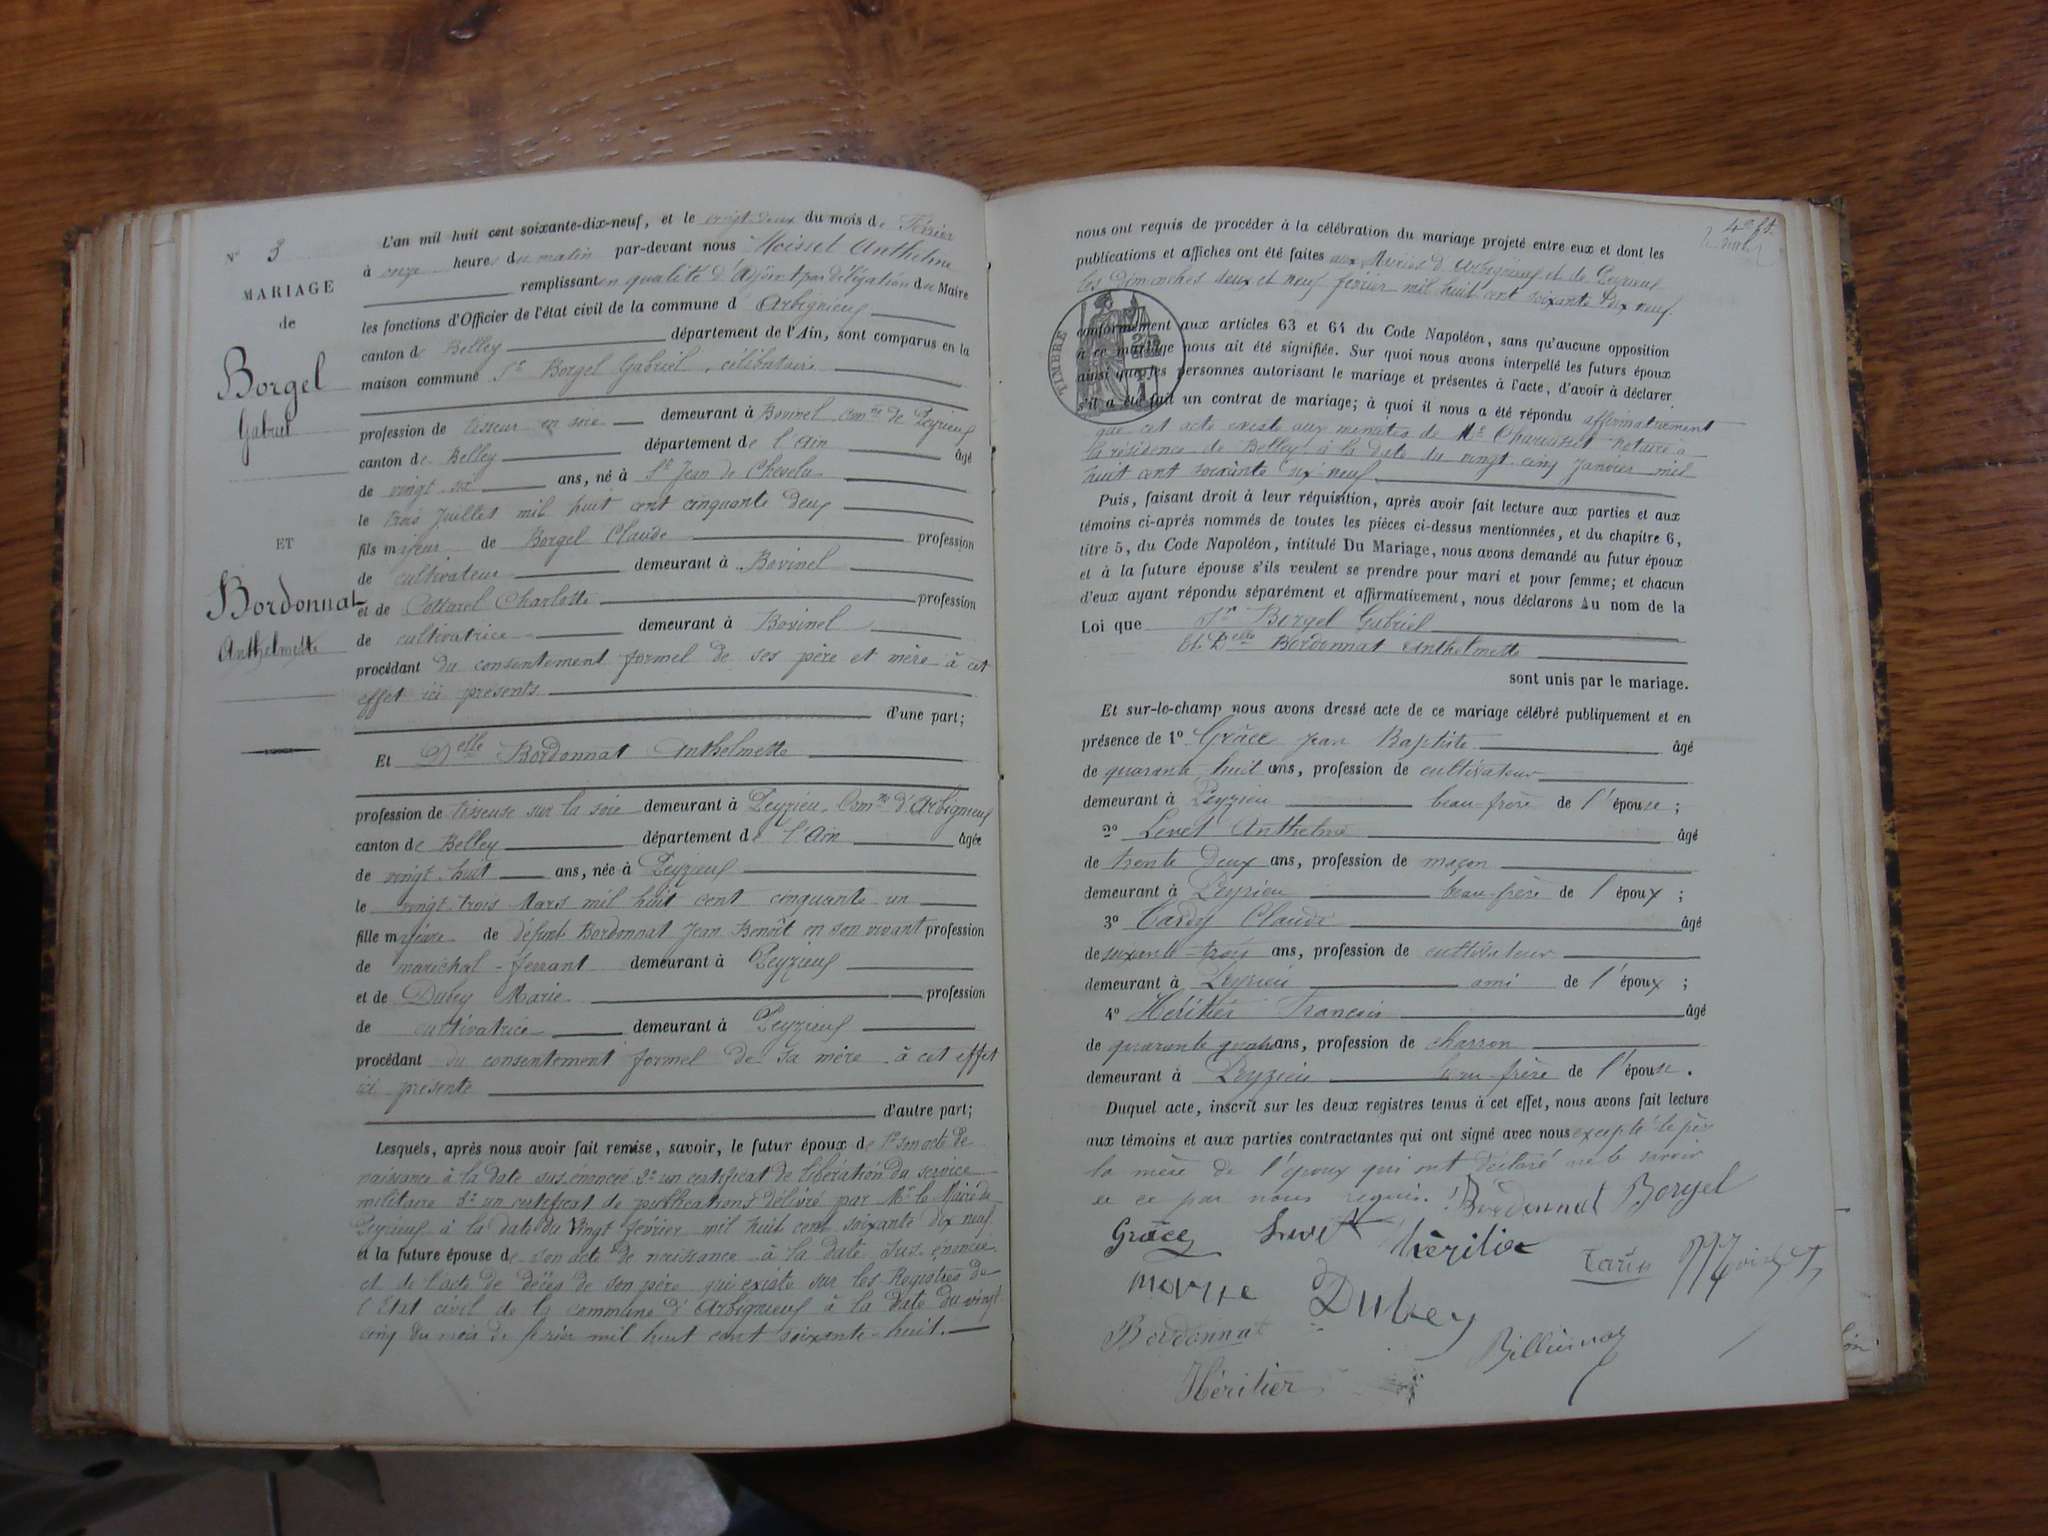 N° 3
MARIAGE
de
Borgel
Gabriel
ET
Bordonnat
Anthelmette
L'an mil huit cent soixante-dix-neuf, et le vingt deux du mois de Février
à onze heures du matin par-devant nous Moissel Anthelme
remplissant en qualité d'Adjoint par délégation du Maire
les fonctions d'Officier de l'état civil de la commune d'Arbignieu
canton de Belley département de l'Ain, sont comparus en la
maison commune Sr Borgel Gabriel, célibataire
profession de tisseur en soie demeurant à Bovinel Comne de Peyrieuf
canton de Belley département de l'Ain âgé
de vingt six ans, né à St Jean de Chevelu
le trois Juillet mil huit cent cinquante deux
fils majeur de Borgel Claude profession
de cultivateur demeurant à Bovinel
et de Cottarel Charlotte profession
de cultivatrice demeurant à Bovinel
procédant du consentement formel de ses père et mère à cet
effet ici présents
d'une part;
Et Delle Bordonnat Anthelmette
profession de tisseuse sur la soie demeurant à Peyzieu, Comne d'Arbignieuf
canton de Belley département de l'Ain âgée
de vingt-huit ans, née à Peyzieuf
le vingt-trois Mars mil huit cent cinquante un
fille majeure de défunt Bordonnat Jean Benoît en son vivant profession
de maréchal-ferrant demeurant à Peyzieuf
et de Dubey Marie profession
de cultivatrice demeurant à Peyzieuf
procédant du consentement formel de sa mère à cet effet
ici présente
d'autre part;
Lesquels, après nous avoir fait remise, savoir, le futur époux de 1° son acte de
naissance à la date sus énoncée 2° un certificat de libération du service
militaire 3° un certificat de publications délivré par Mr le Maire de
Peyrieuf à la date du Vingt février mil huit cent soixante dix neuf
et la future épouse de son acte de naissance à la date sus énoncée
et de l'acte de décès de son père qui existe sur les Registres de
l'Etat civil de la commune d'Arbignieuf à la date du vingt
cinq du mois de février mil huit cent soixante-huit.
nous ont requis de procéder à la célébration du mariage projeté entre eux et dont les
publications et affiches ont été faites aux Mairies d'Arbignieuf et de Peyrieuf
les dimanches deux et neuf février mil huit cent soixante dix neuf
TIMBRE
conformément aux articles 63 et 64 du Code Napoléon, sans qu'aucune opposition
à ce mariage nous ait été signifiée. Sur quoi nous avons interpellé les futurs époux
ainsi que les personnes autorisant le mariage et présentes à l'acte, d'avoir à déclarer
s'il a été fait un contrat de mariage; à quoi il nous a été répondu affirmativement
que cet acte existe aux minutes de Me notaire à
la résidence de Belley à la date du vingt cinq Janvier mil
huit cent soixante dix neuf
Puis, faisant droit à leur réquisition, après avoir fait lecture aux parties et aux
témoins ci-après nommés de toutes les pièces ci-dessus mentionnées, et du chapitre 6,
titre 5, du Code Napoléon, intitulé Du Mariage, nous avons demandé au futur époux
et à la future épouse s'ils veulent se prendre pour mari et pour femme; et chacun
d'eux ayant répondu séparément et affirmativement, nous déclarons Au nom de la
Loi que Sr Borgel Gabriel
Et Delle Bordonnat Anthelmette
sont unis par le mariage.
Et sur-le-champ nous avons dressé acte de ce mariage célébré publiquement et en
présence de 1° Grâce Jean Baptiste âgé
de quarante huit ans, profession de cultivateur
demeurant à Peyzieu beau-frère de l'épouse;
2° Levet Anthelme âgé
de trente deux ans, profession de maçon
demeurant à Peyrieu beau-frère de l'époux;
3° Tardy Claude âgé
de soixante-trois ans, profession de cultivateur
demeurant à Peyrieu ami de l'époux;
4° Héritier François âgé
de quarante quatre ans, profession de charron
demeurant à Peyzieu beau-frère de l'épouse.
Duquel acte, inscrit sur les deux registres tenus à cet effet, nous avons fait lecture
aux témoins et aux parties contractantes qui ont signé avec nous excepté le père
la mère de l'époux qui ont déclaré ne le savoir
de ce par nous requis. Bordonnat Borgel
Grâce Levet héritier
Dubey
Bordonnat
Héritier